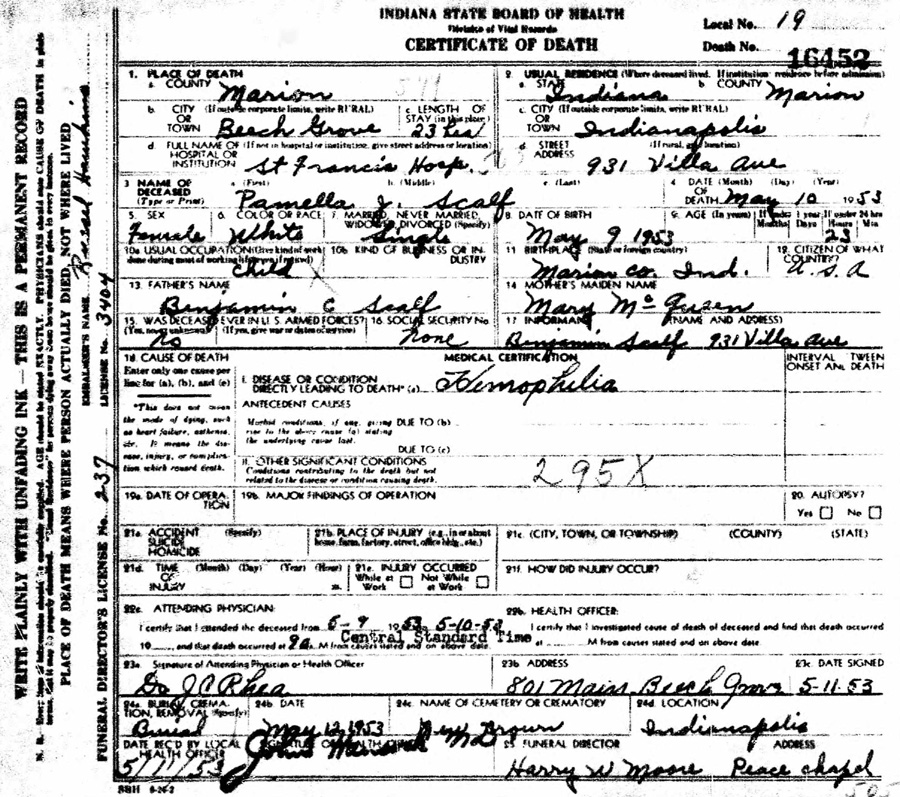 INDIANA STATE BOARD OF HEALTH
Division of Vital Records
CERTIFICATE OF DEATH
Local No. 19
Death No. 16452
1. PLACE OF DEATH
a. COUNTY Marion
2. USUAL RESIDENCE (Where deceased lived. If institution: residence before admission)
a. STATE Indiana b. COUNTY Marion
b. CITY (If outside corporate limits, write RURAL) OR TOWN Beech Grove
c. LENGTH OF STAY (in this place)
c. CITY (If outside corporate limits, write RURAL) OR TOWN Indianapolis
d. FULL NAME OF (If not in hospital or institution, give street address or location) HOSPITAL OR INSTITUTION St Francis Hosp.
d. STREET ADDRESS (If rural, give location) 931 Villa Ave
3. NAME OF DECEASED (Type or Print) a. (First) b. (Middle) c. (Last) Pamella J. Scalf
4. DATE OF DEATH (Month) (Day) (Year) May 10 1953
5. SEX Female
6. COLOR OR RACE White
7. MARRIED, NEVER MARRIED, WIDOWED, DIVORCED (Specify) Single
8. DATE OF BIRTH May 9 1953
9. AGE (In years) If under 1 year Months Days If under 24 hrs Hours Min 23
10a. USUAL OCCUPATION (Give kind of work done during most of working life, even if retired) Child
10b. KIND OF BUSINESS OR INDUSTRY
11. BIRTHPLACE (State or foreign country) Marion Co. Ind.
12. CITIZEN OF WHAT COUNTRY? U.S.A
13. FATHER'S NAME Benjamin C Scalf
14. MOTHER'S MAIDEN NAME Mary
15. WAS DECEASED EVER IN U. S. ARMED FORCES? (Yes, no, unknown) (If yes, give war or dates of service) No
16. SOCIAL SECURITY No. None
17. INFORMANT (NAME AND ADDRESS) Benjamin Scalf 931 Villa Ave
18. CAUSE OF DEATH
Enter only one cause per line for (a), (b), and (c)
MEDICAL CERTIFICATION
INTERVAL TWEEN ONSET AND DEATH
I. DISEASE OR CONDITION DIRECTLY LEADING TO DEATH* (a) Hemophilia
ANTECEDENT CAUSES
Morbid conditions, if any, giving rise to the above cause (a) stating the underlying cause last.
DUE TO (b)
DUE TO (c)
*This does not mean the mode of dying, such as heart failure, asthenia, etc. It means the disease, injury, or complication which caused death.
II. OTHER SIGNIFICANT CONDITIONS
Conditions contributing to the death but not related to the disease or condition causing death.
295X
19a. DATE OF OPERATION
19b. MAJOR FINDINGS OF OPERATION
20. AUTOPSY? Yes No
21a. ACCIDENT SUICIDE HOMICIDE (Specify)
21b. PLACE OF INJURY (e.g., in or about home, farm, factory, street, office bldg., etc.)
21c. (CITY, TOWN, OR TOWNSHIP) (COUNTY) (STATE)
21d. TIME OF INJURY (Month) (Day) (Year) (Hour) m.
21e. INJURY OCCURRED While at Work Not While at Work
21f. HOW DID INJURY OCCUR?
22a. ATTENDING PHYSICIAN:
I certify that I attended the deceased from 5-9 1953 5-10-53
19 , and that death occurred at 9a M from causes stated and on above date.
Central Standard Time
22b. HEALTH OFFICER:
I certify that I investigated cause of death of deceased and find that death occurred at M from causes stated and on above date.
23a. Signature of Attending Physician or Health Officer
Dr J C Rhea
23b. ADDRESS 801 Main Beech Grove
23c. DATE SIGNED 5-11-53
24a. BURIAL, CREMATION, REMOVAL (Specify) Burial
24b. DATE May 12, 1953
24c. NAME OF CEMETERY OR CREMATORY New Crown
24d. LOCATION Indianapolis
DATE REC'D BY LOCAL HEALTH OFFICER 5/11/53
SIGNATURE OF HEALTH OFFICER
25. FUNERAL DIRECTOR ADDRESS
Harry W Moore Peace Chapel
SBH 6-24-2
WRITE PLAINLY WITH UNFADING INK — THIS IS A PERMANENT RECORD
PLACE OF DEATH MEANS WHERE PERSON ACTUALLY DIED, NOT WHERE LIVED
EMBALMER'S NAME
FUNERAL DIRECTOR'S LICENSE No. 237 LICENSE No. 3404